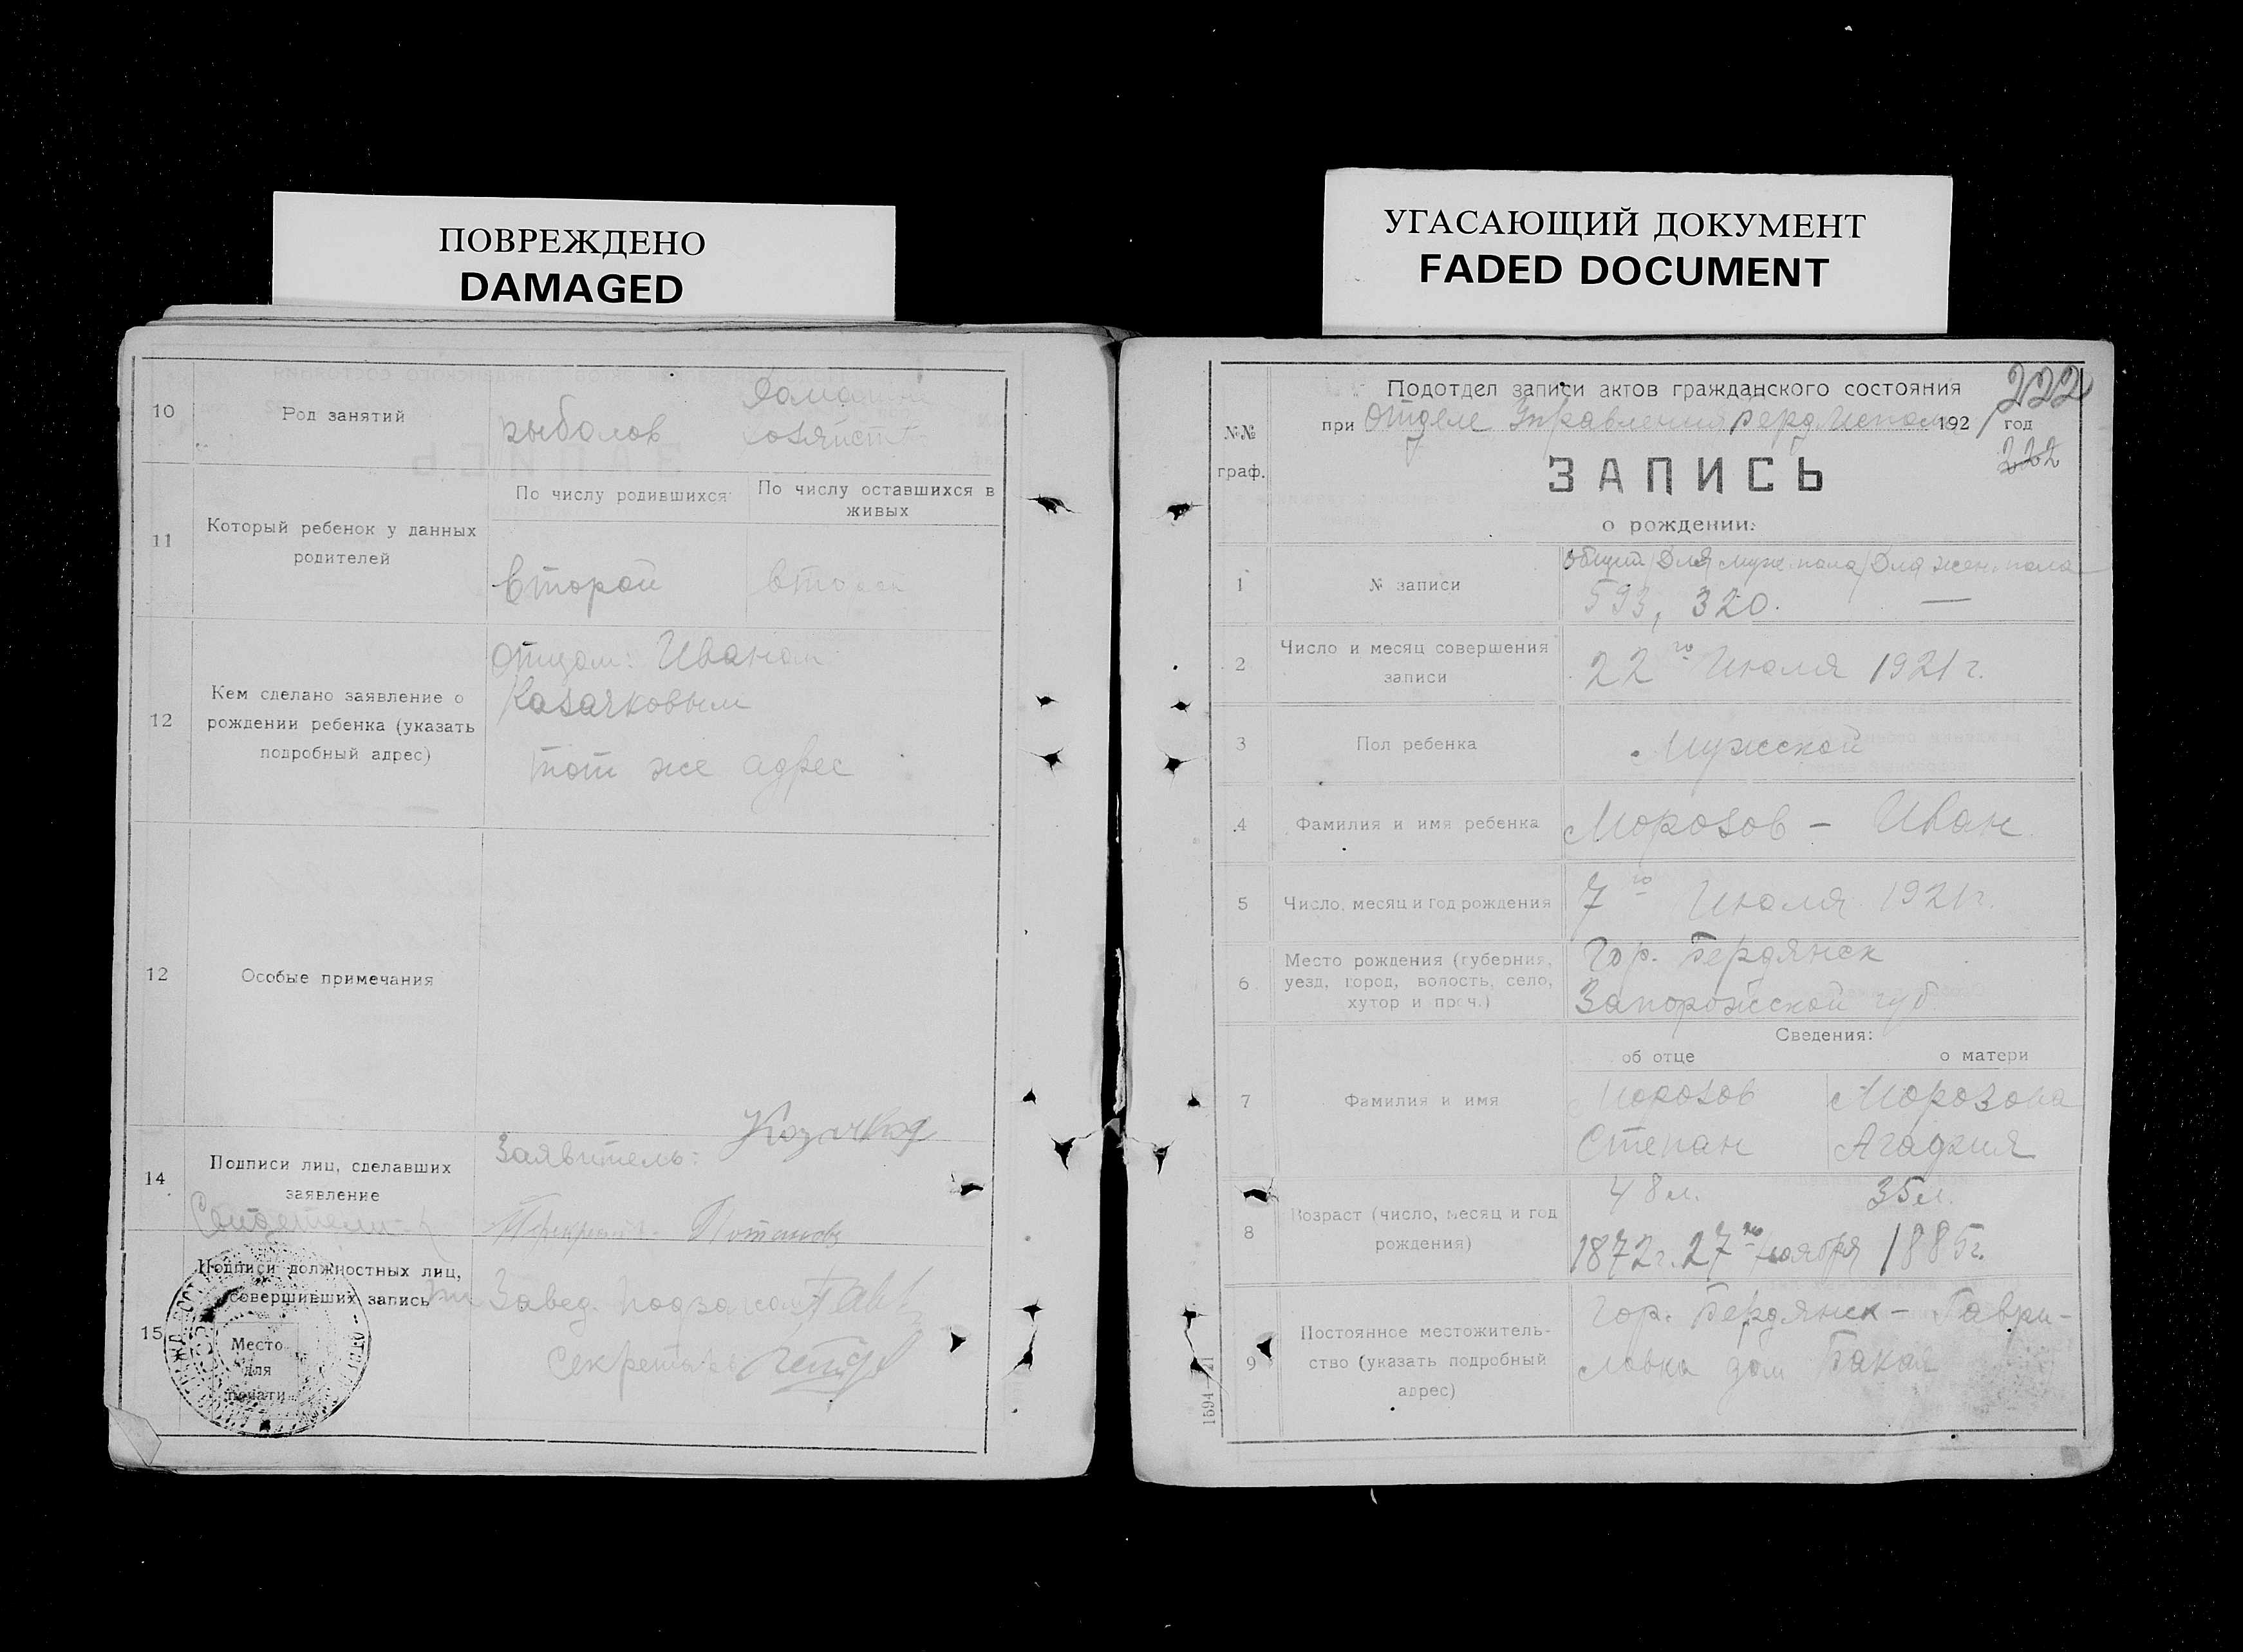 ПОВРЕЖДЕНО
DAMAGED
10
Род занятий
рыболов
11
Который ребенок у данных
родителей
По числу родившихся
По числу оставшихся в
живых
второй
12
Кем сделано заявление о
рождении ребенка (указать
подробный адрес)
отцом: Иваном
Казачковым
тот же адрес
12
Особые примечания
14
Подписи лиц, сделавших
заявление
Заявитель:
15
Подписи должностных лиц,
совершивших запись
Завед.
Место
для
печати
УГАСАЮЩИЙ ДОКУМЕНТ
FADED DOCUMENT
222
Подотдел записи актов гражданского состояния
№№
граф.
при Отделе Управления Берд. 1921 год
222
ЗАПИСЬ
о рождении:
1
№ записи
общий / Для муж. пола / Для жен. пола
593, 320. —
2
Число и месяц совершения
записи
22го Июля 1921 г.
3
Пол ребенка
Мужской
4
Фамилия и имя ребенка
Морозов – Иван
5
Число, месяц и год рождения
7го Июля 1921 г.
6
Место рождения (губерния,
уезд, город, волость, село,
хутор и проч.)
Гор. Бердянск
Запорожской губ
Сведения:
об отце
о матери
7
Фамилия и имя
Морозов
Степан
Морозова
8
Возраст (число, месяц и год
рождения)
48 л.
35 л.
1872 г. 27го ноября 1885 г.
9
Постоянное местожитель-
ство (указать подробный
адрес)
Гор. Бердянск –
дом
1594—21